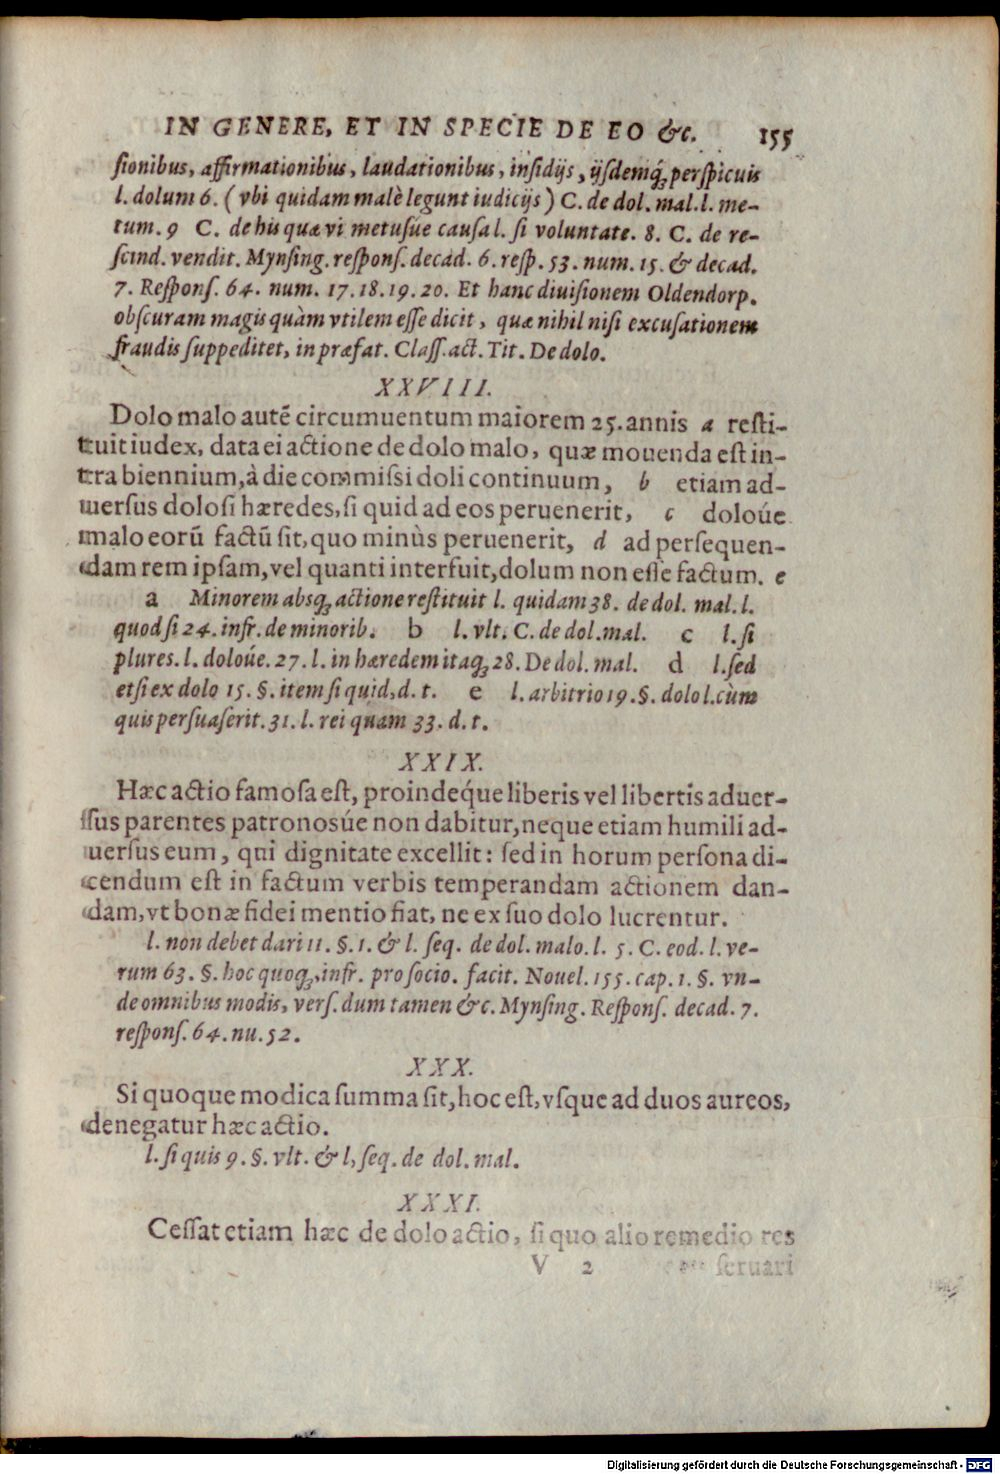 IN GENERE, ET IN SPECIE DE EO &c. 155
ſionibus, affirmationibus, laudationibus, inſidijs, ijſdemq́; perſpicuis
l. dolum 6. (vbi quidam malè legunt iudicijs) C. de dol. mal. l. me-
tum. 9 C. de his quæ vi metuſúe cauſa l. ſi voluntate. 8. C. de re-
ſcind. vendit. Mynſing. reſponſ. decad. 6. reſp. 53. num. 15. & decad.
7. Reſponſ. 64. num. 17. 18. 19. 20. Et hanc diuiſionem Oldendorp.
obſcuram magis quàm vtilem eſſe dicit, quæ nihil niſi excuſationem
fraudis ſuppeditet, in præfat. Claſſ. act. Tit. De dolo.
XXVIII.
Dolo malo autē circumuentum maiorem 25. annis a reſti-
tuit iudex, data ei actione de dolo malo, quæ mouenda eſt in-
tra biennium, à die commiſsi doli continuum, b etiam ad-
uerſus doloſi hæredes, ſi quid ad eos peruenerit, c dolóue
malo eorū factū ſit, quo minùs peruenerit, d ad perſequen-
dam rem ipſam, vel quanti interfuit, dolum non eſſe factum. e
a Minorem absq́; actione reſtituit l. quidam 38. de dol. mal. l.
quod ſi 24. infr. de minorib. b l. vlt. C. de dol. mal. c l. ſi
plures. l. dolóue. 27. l. in hæredem itaq́; 28. De dol. mal. d l. ſed
etſi ex dolo 15. §. item ſi quid, d. t. e l. arbitrio 19. §. dolo l. cùm
quis perſuaſerit. 31. l. rei quam 33. d. t.
XXIX.
Hæc actio famoſa eſt, proindéque liberis vel libertis aduer-
ſus parentes patronosúe non dabitur, neque etiam humili ad-
uerſus eum, qui dignitate excellit: ſed in horum perſona di-
cendum eſt in factum verbis temperandam actionem dan-
dam, vt bonæ fidei mentio fiat, ne ex ſuo dolo lucrentur.
l. non debet dari 11. §. 1. & l. ſeq. de dol. malo. l. 5. C. eod. l. ve-
rum 63. §. hoc quoq́;, infr. pro ſocio. facit. Nouel. 155. cap. 1. §. vn-
de omnibus modis, verſ. dum tamen &c. Mynſing. Reſponſ. decad. 7.
reſponſ. 64. nu. 52.
XXX.
Si quoque modica ſumma ſit, hoc eſt, vſque ad duos aureos,
denegatur hæc actio.
l. ſi quis 9. §. vlt. & l, ſeq. de dol. mal.
XXXI.
Ceſſat etiam hæc de dolo actio, ſi quo alio remedio res
V 2 ſeruari
Digitalisierung gefördert durch die Deutsche Forschungsgemeinschaft - DFG